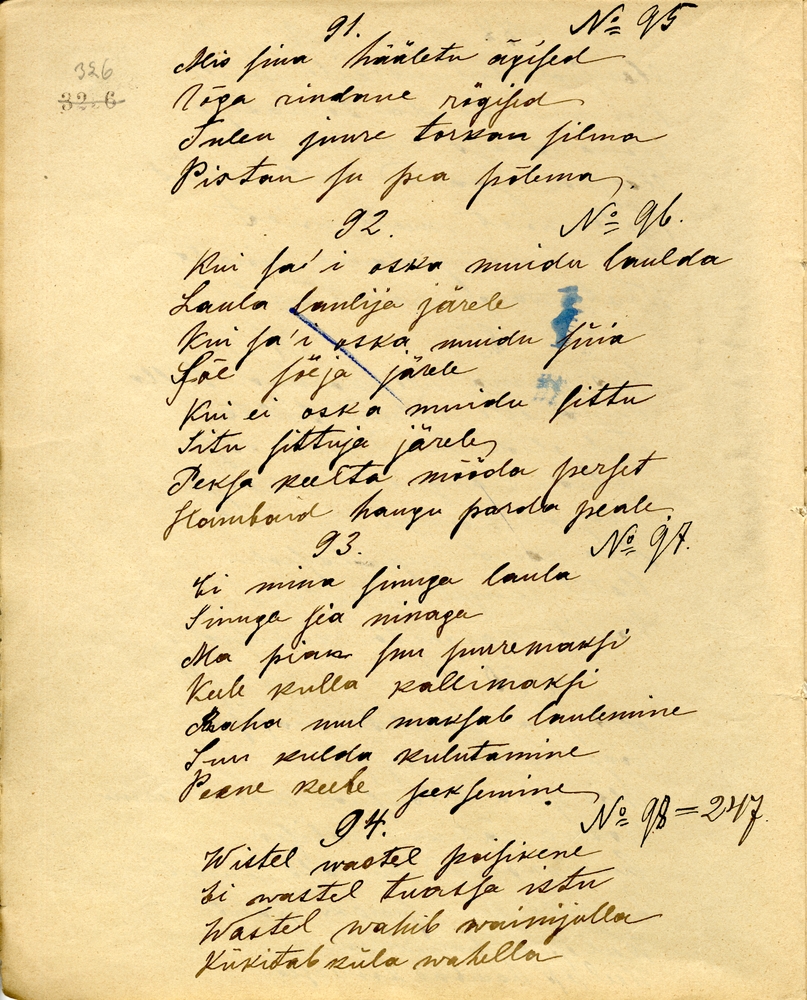 91. № 95
326
32.6
Mis sina hääletu ägised
Tõga rindane rögised
Tulen juure torkan silma
Pistan su pea põlema,
92. № 96.
Kui sa'i oska muidu laulda
Laula laulija järele
Kui sa'i oska muidu süia
Söe sööja järele
Kui ei oska muidu sittu
Situ sittuja järele,
Peksa keelta mööda perset
Hambaid haugu parda peale.
93. № 97.
Ei mina sinuga laula
Sinuga sia ninaga
Ma pian suu suuremaksi
Keele kulla kallimaksi
Raha mul maksab laulemine
Suu kulda kulutamine
Peene keele peksemine,
94. № 98 = 247.
Wistel wastel poisikene
Ei wastel tuassa istu
Wastel wahib wainijulla
Kükitab küla wahella